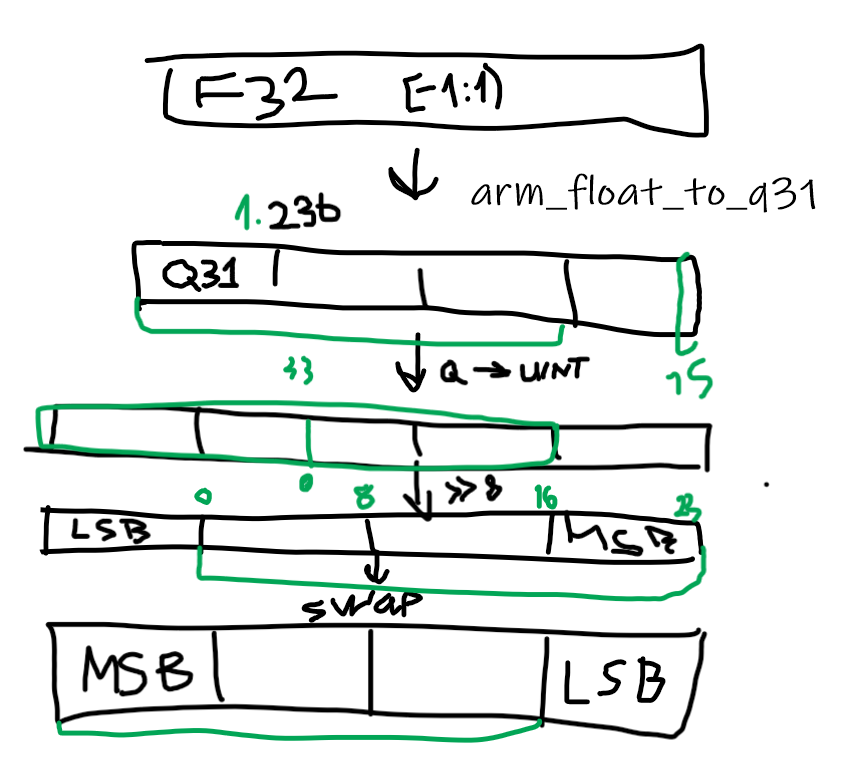 F32 [-1:1)
arm_float_to_q31
1.23b
Q31
Q → UINT
0 8 >> 8 16 23
LSB MSB
SWAP
MSB LSB